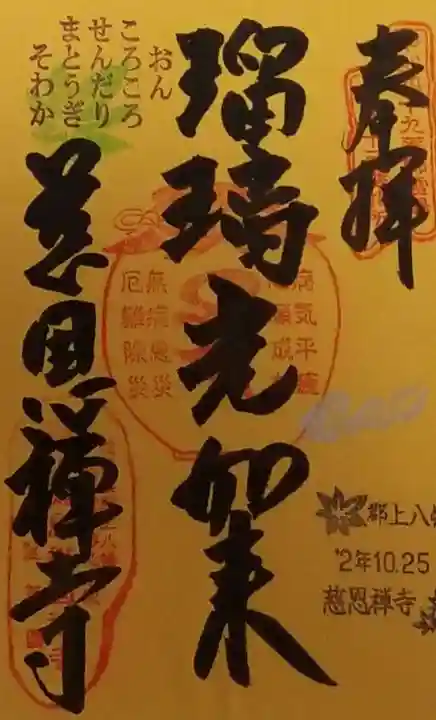 奉拝
瑠璃光如来
病気平癒
無病息災
厄難除災
おん
ころころ
せんだり
まとうぎ
そわか
慈恩禅寺
郡上八幡
'2年10.25
慈恩禅寺